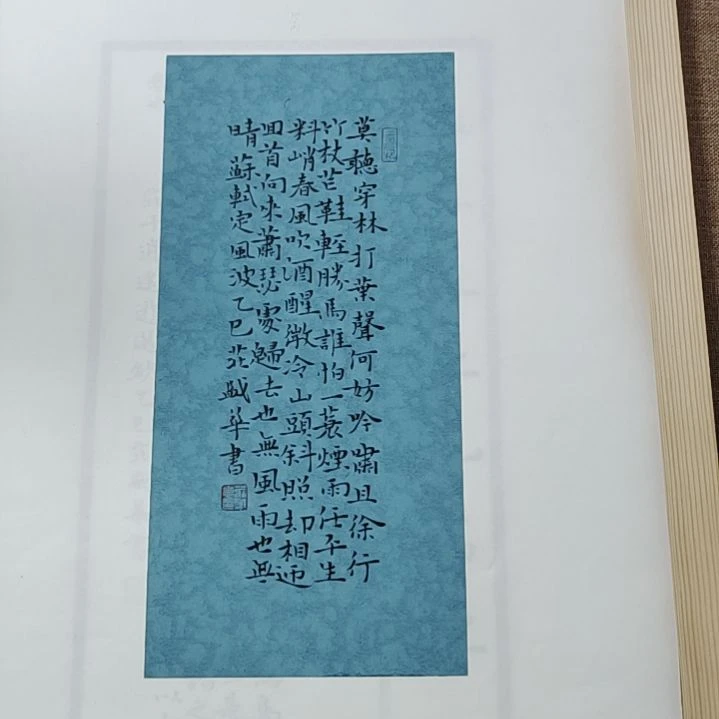 莫聽穿林打葉聲何妨吟嘯且徐行
竹杖芒鞋輕勝馬誰怕一蓑煙雨任平生
料峭春風吹酒醒微冷山頭斜照却相迎
回首向來蕭瑟處歸去也無風雨也無
晴蘇軾定風波乙巳花月華書